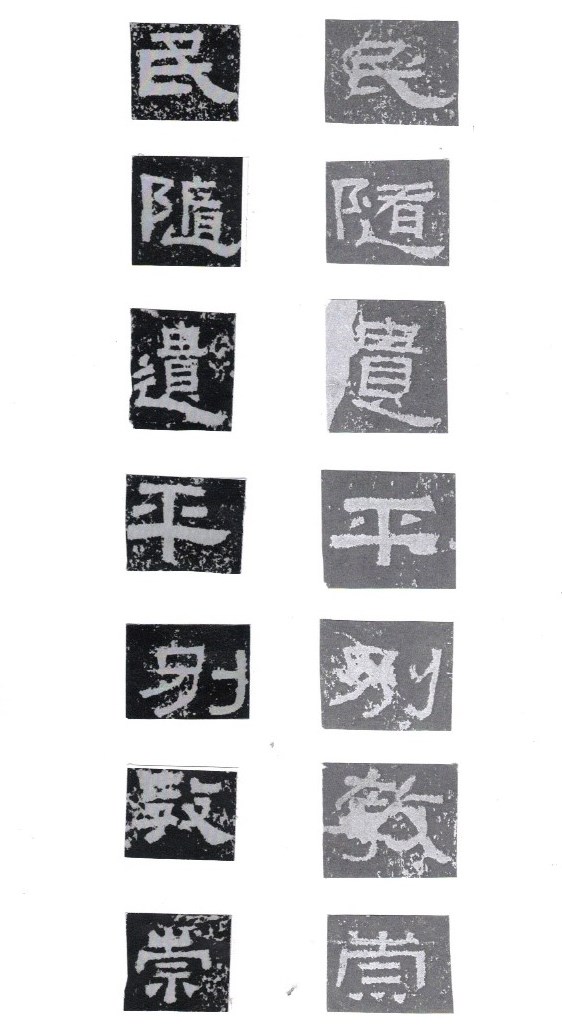 民 民
隨 隨
遺 遺
平 平
別 別
教 教
崇 崇